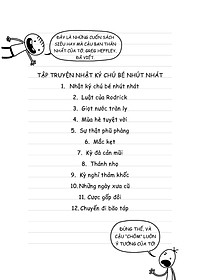 ĐÂY LÀ NHỮNG CUỐN SÁCH
SIÊU HAY MÀ CẬU BẠN THÂN
NHẤT CỦA TỚ, GREG HEFFLEY,
ĐÃ VIẾT.
TẬP TRUYỆN NHẬT KÝ CHÚ BÉ NHÚT NHÁT
1. Nhật ký chú bé nhút nhát
2. Luật của Rodrick
3. Giọt nước tràn ly
4. Mùa hè tuyệt vời
5. Sự thật phũ phàng
6. Mắc kẹt
7. Kỳ đà cản mũi
8. Thánh nhọ
9. Kỳ nghỉ thảm khốc
10. Những ngày xưa cũ
11. Cược gấp đôi
12. Chuyến đi bão táp
ĐÚNG THẾ, VÀ
CẬU "CHÔM" LUÔN
Ý TƯỞNG CỦA TỚ